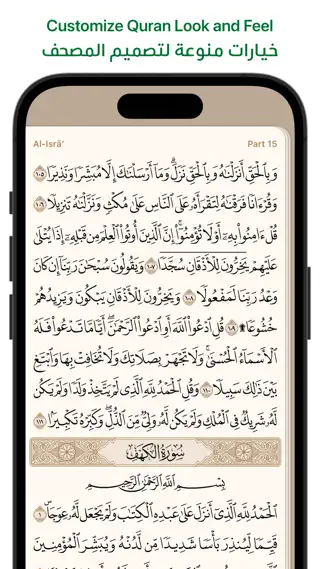 Customize Quran Look and Feel
خيارات منوعة لتصميم المصحف
Al-Isrā’
Part 15
وَبِالْحَقِّ أَنزَلْنَاهُ وَبِالْحَقِّ نَزَلَ ۗ وَمَا أَرْسَلْنَاكَ إِلَّا مُبَشِّرًا وَنَذِيرًا ١٠٥
وَقُرْءَانًا فَرَقْنَاهُ لِتَقْرَأَهُ عَلَى النَّاسِ عَلَىٰ مُكْثٍ وَنَزَّلْنَاهُ تَنزِيلًا ١٠٦
قُلْ ءَامِنُوا بِهِ أَوْ لَا تُؤْمِنُوا ۚ إِنَّ الَّذِينَ أُوتُوا الْعِلْمَ مِن قَبْلِهِ إِذَا يُتْلَىٰ
عَلَيْهِمْ يَخِرُّونَ لِلْأَذْقَانِ سُجَّدًا ١٠٧ وَيَقُولُونَ سُبْحَانَ رَبِّنَا إِن كَانَ
وَعْدُ رَبِّنَا لَمَفْعُولًا ١٠٨ وَيَخِرُّونَ لِلْأَذْقَانِ يَبْكُونَ وَيَزِيدُهُمْ
خُشُوعًا ۩ ١٠٩ قُلِ ادْعُوا اللَّهَ أَوِ ادْعُوا الرَّحْمَٰنَ ۖ أَيًّا مَّا تَدْعُوا فَلَهُ
الْأَسْمَاءُ الْحُسْنَىٰ ۚ وَلَا تَجْهَرْ بِصَلَاتِكَ وَلَا تُخَافِتْ بِهَا وَابْتَغِ
بَيْنَ ذَٰلِكَ سَبِيلًا ١١٠ وَقُلِ الْحَمْدُ لِلَّهِ الَّذِي لَمْ يَتَّخِذْ وَلَدًا وَلَمْ يَكُن
لَّهُ شَرِيكٌ فِي الْمُلْكِ وَلَمْ يَكُن لَّهُ وَلِيٌّ مِّنَ الذُّلِّ ۖ وَكَبِّرْهُ تَكْبِيرًا ١١١
سُورَةُ الكَهْفِ
بِسْمِ اللَّهِ الرَّحْمَٰنِ الرَّحِيمِ
الْحَمْدُ لِلَّهِ الَّذِي أَنزَلَ عَلَىٰ عَبْدِهِ الْكِتَابَ وَلَمْ يَجْعَل لَّهُ عِوَجًا ۜ ١
قَيِّمًا لِّيُنذِرَ بَأْسًا شَدِيدًا مِّن لَّدُنْهُ وَيُبَشِّرَ الْمُؤْمِنِينَ